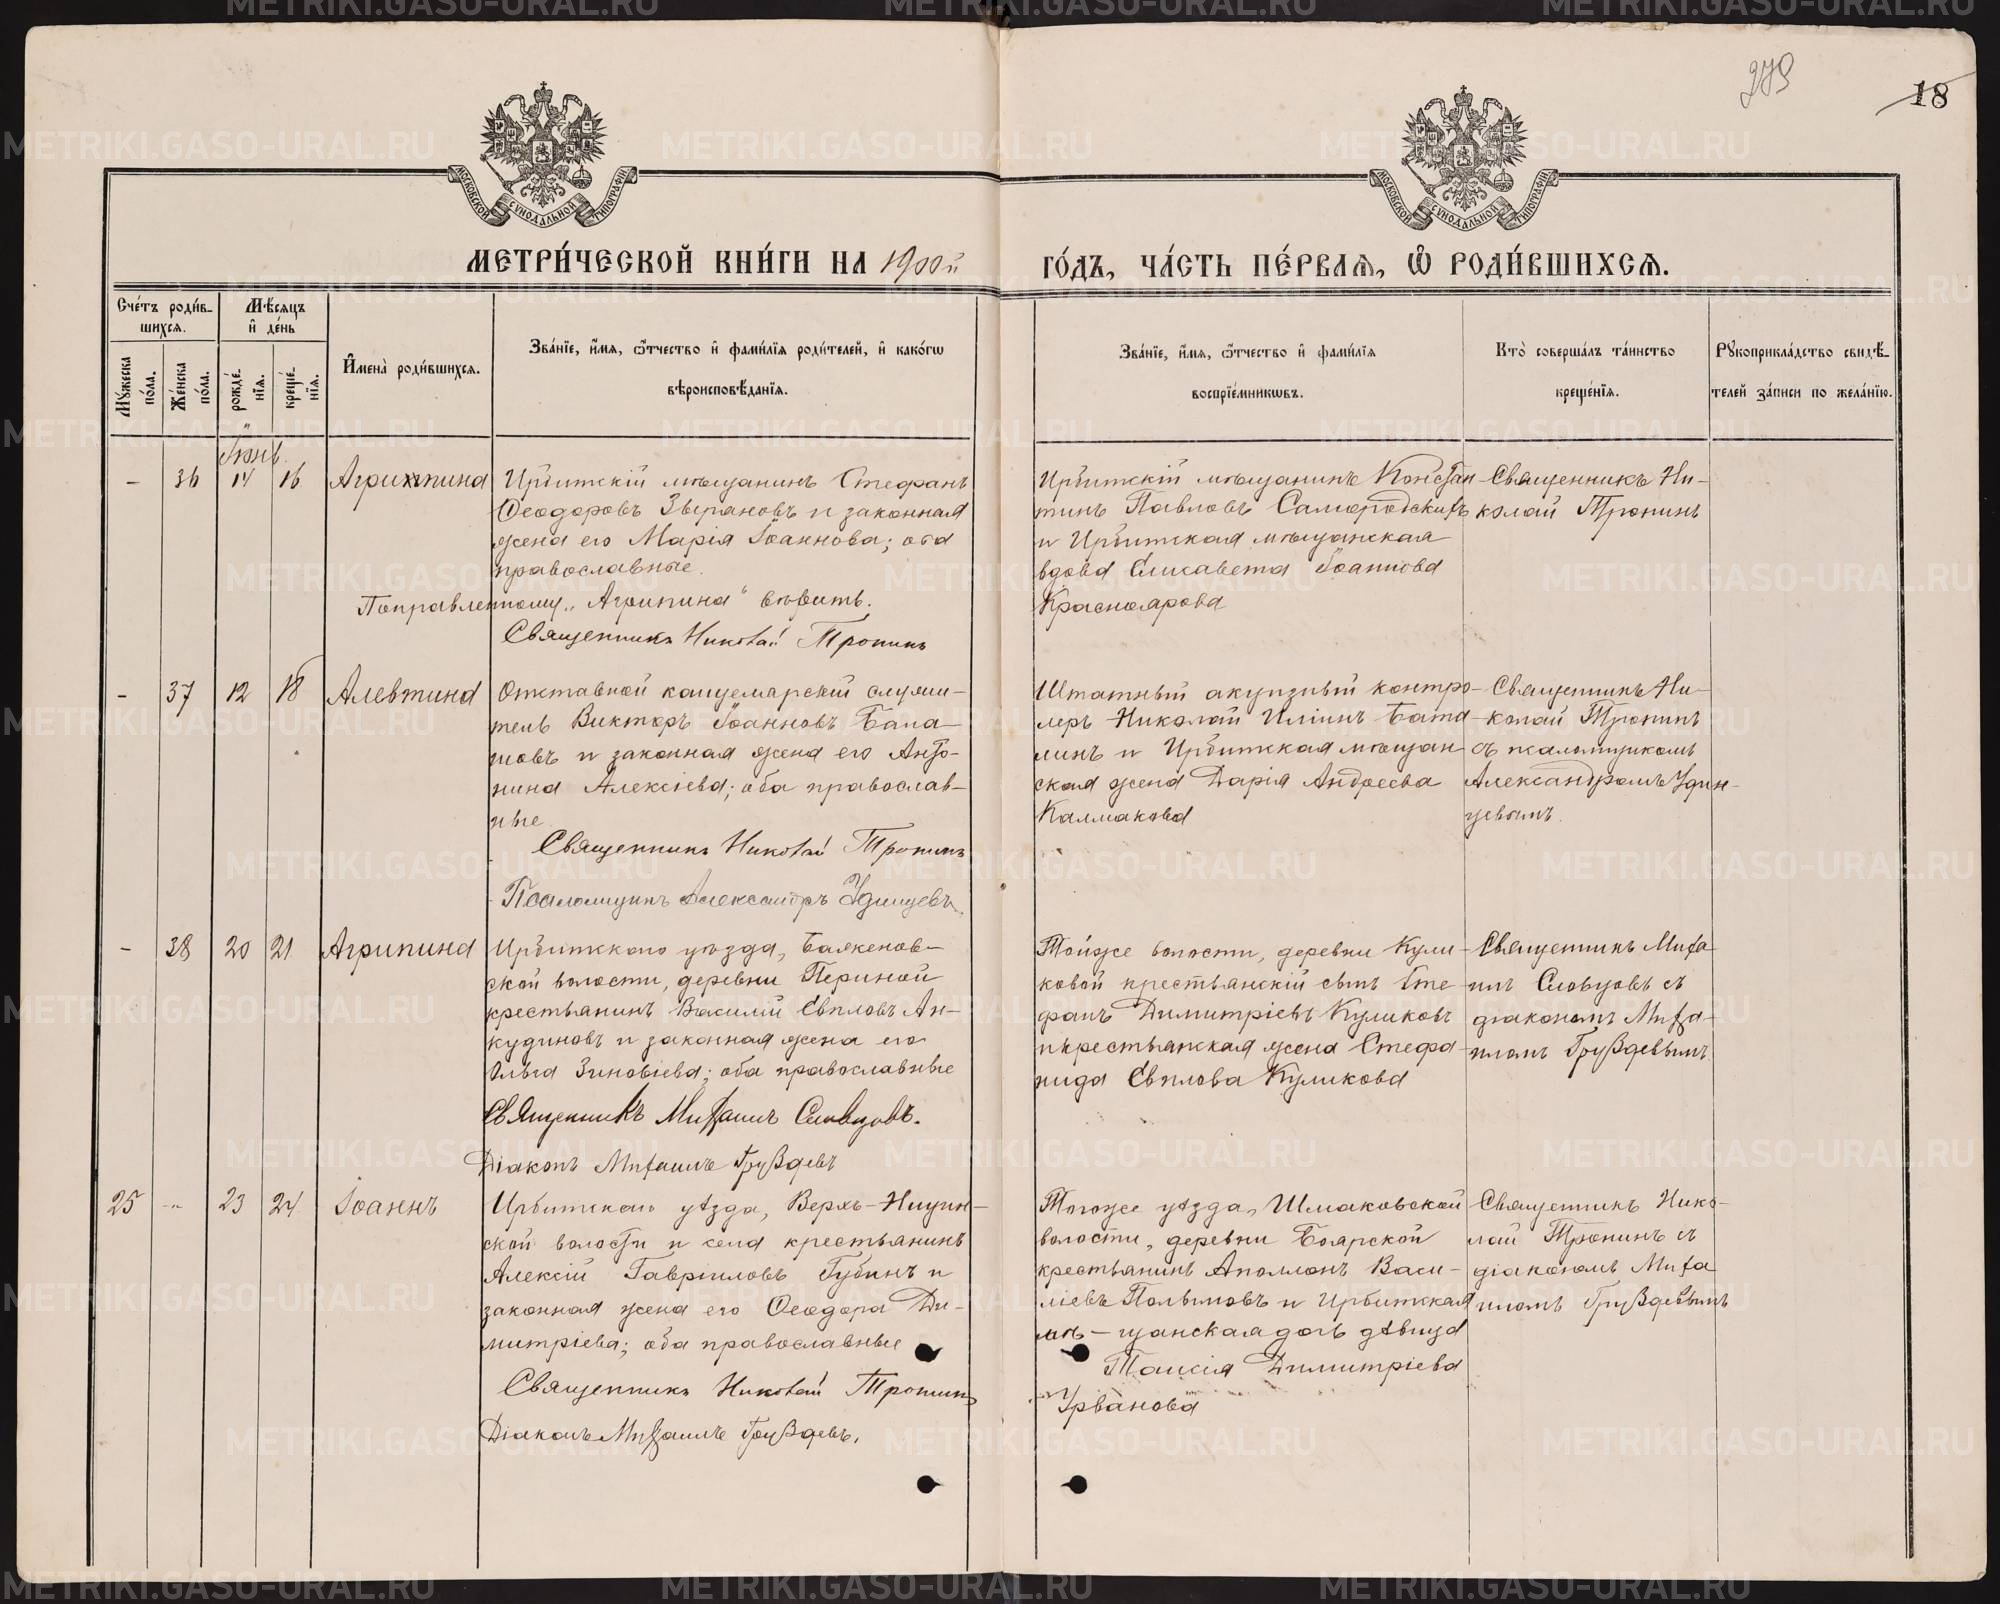 279
18
МОСКОВСКОЙ СѴНОДАЛЬНОЙ ТИПОГРАФІИ
МОСКОВСКОЙ СѴНОДАЛЬНОЙ ТИПОГРАФІИ
МЕТРИ́ЧЕСКОЙ КНИ́ГИ НА 1900й
ГО́ДЪ, ЧА́СТЬ ПЕ́РВАѦ, Ѡ҆ РОДИ́ВШИХСѦ.
Сче́тъ роди́в-
шихсѧ.
Мꙋжеска по́ла.
Же́нска по́ла.
Мѣ́сѧцъ
и҆ де́нь
рожде́нїѧ.
креще́нїѧ.
И҆мена̀ роди́вшихсѧ.
Зва́нїе, и҆́мѧ, ѻ҆́тчество и҆ фами́лїѧ роди́телей, и҆ како́гѡ
вѣроисповѣ́данїѧ.
Зва́нїе, и҆́мѧ, ѻ҆́тчество и҆ фами́лїѧ
воспрїе́мникѡвъ.
Кто̀ соверша́лъ та́инство
креще́нїѧ.
Рꙋкоприкла́дство свидѣ́-
телей за́писи по жела́нїю.
Іюнь
– 36 14 16 Агрипина
Ирбитскій мѣщанинъ Стефанъ
Ѳеодоровъ Звѣрановъ и законная
жена его Марія Іоаннова; оба
православные.
Поправленному „Агрипина“ вѣрить.
Священникъ Николай Тропинъ
Ирбитскій мѣщанинъ Констан-
тинъ Павловъ Самородскихъ
и Ирбитская мѣщанская
вдова Елисавета Іоаннова
Красноярова
Священникъ Ни-
колай Тропинъ
– 37 12 18 Алевтина
Отставной канцелярскій служи-
тель Викторъ Іоанновъ Бала-
шовъ и законная жена его Анто-
нина Алексіева; оба православ-
ные
Священникъ Николай Тропинъ
Псаломщикъ Александръ Удинцевъ
Штатный акцизный контро-
леръ Николай Иліинъ Бата-
линъ и Ирбитская мѣщан
ская жена Дарія Андреева
Калмакова
Священникъ Ни-
колай Тропинъ
съ псаломщикомъ
Александромъ Удин-
цевымъ.
– 38 20 21 Агрипина
Ирбитскаго уѣзда,
ской волости, деревни Периной
крестьянинъ Василій Евпловъ Ан-
кудиновъ и законная жена его
Ольга Зиновіева; оба православные
Священникъ Михаилъ Словцовъ.
Діаконъ Михаилъ Груздевъ
Тойже волости, деревни Кули-
ковой крестьянскій сынъ Сте
фанъ Димитріевъ Куликовъ
и крестьянская жена Стефа-
нида Евплова Куликова
Священникъ Миха
илъ Словцовъ съ
діакономъ Миха-
иломъ Груздевымъ.
25 – 23 24 Іоаннъ
Ирбитскаго уѣзда, Верхъ-Ницин-
ской волости и села крестьянинъ
Алексій Гавріиловъ Губинъ и
законная жена его Ѳеодора Ди-
митріева; оба православные
Священникъ Николай Тропинъ
Діаконъ Михаилъ Груздевъ.
Тогоже уѣзда, Шмаковской
волости, деревни Боярской
крестьянинъ Аполлонъ Васи-
ліевъ и Ирбитская
мѣ-щанская дочь дѣвица
Таисія Димитріева
Урванова
Священникъ Нико-
лай Тропинъ съ
діакономъ Миха
иломъ Груздевымъ
METRIKI.GASO-URAL.RU